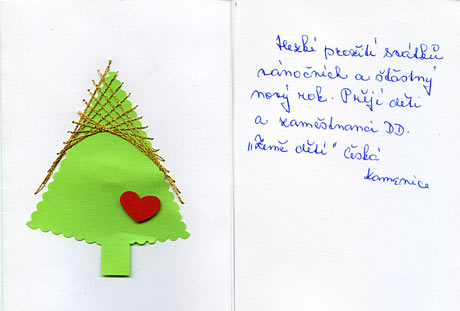 Hezké prožití svátků
vánočních a šťastný
nový rok. Přejí děti
a zaměstnanci DD.
„Země dětí" Česká
Kamenice